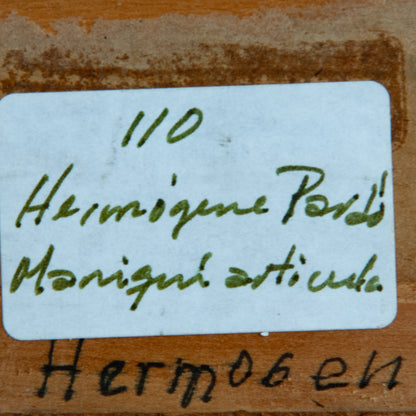 110
Hermógene Pardo
Maniquí articula
Hermogen